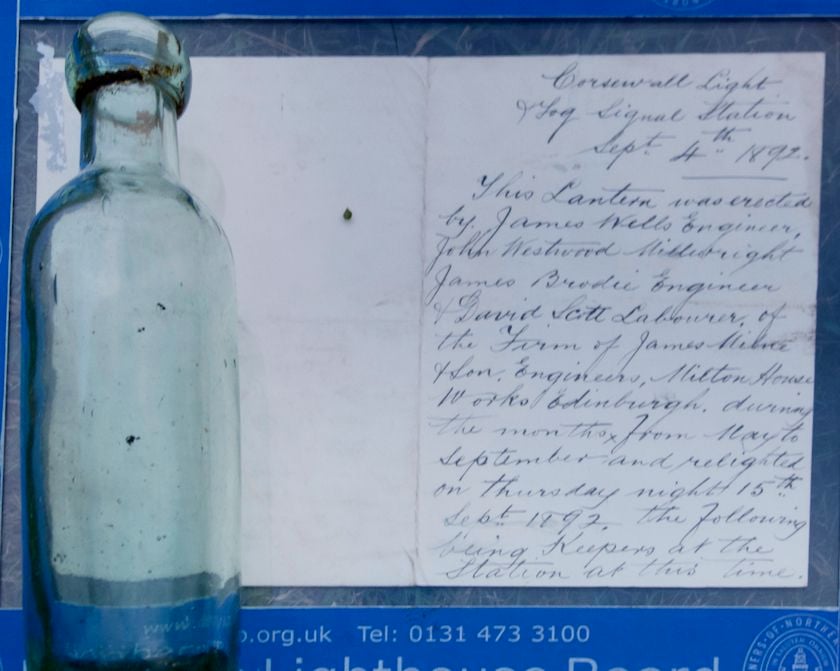 Corsewall Light
& Fog Signal Station
Sept. 4th 1892.
This Lantern was erected
by James Wells Engineer,
John Westwood Millwright
James Brodie Engineer
& David Scott Labourer, of
the Firm of James Milne
& Son, Engineers, Milton House
Works Edinburgh. during
the months from May to
September and relighted
on Thursday night 15th
Sept. 1892. The following
being Keepers at the
Station at this time.
.org.uk Tel: 0131 473 3100
Lighthouse Board